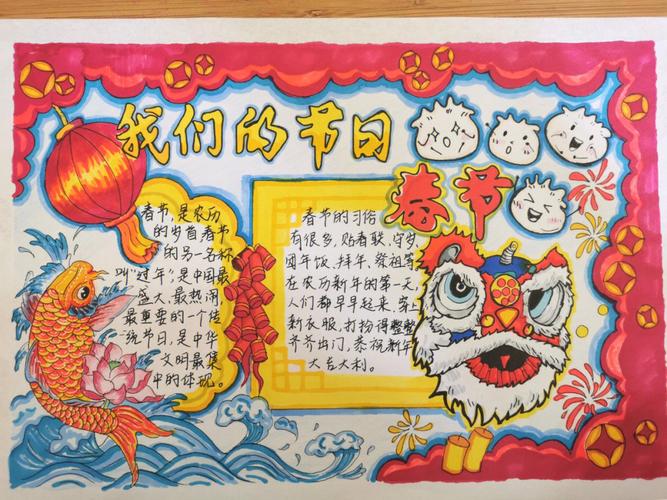 我们的节日
春节
春节,是农历
的岁首春节
的另一名称
叫“过年”,是中国最
盛大、最热闹、
最重要的一个传
统节日,是中华
文明最集
中的体现。
春节的习俗
有很多,贴春联,守岁,
团年饭,拜年,祭祖等
在农历新年的第一天,
人们都早早起来,穿上
新衣服,打扮得整整
齐齐出门,恭祝新年
大吉大利。